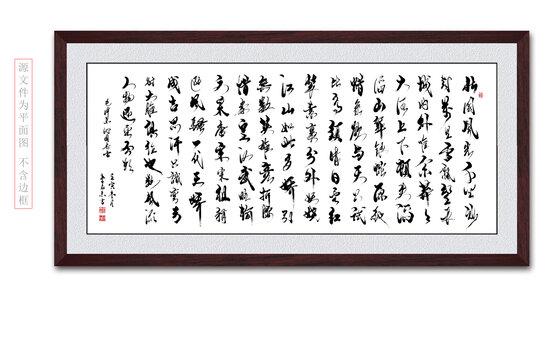 源文件为平面图 不含边框
北国风光千里冰
封万里雪飘望长
城内外惟余莽莽
大河上下顿失滔
滔山舞银蛇原驰
蜡象欲与天公试
比高须晴日看红
装素裹分外妖娆
江山如此多娇引
无数英雄竞折腰
惜秦皇汉武略输
文采唐宗宋祖稍
逊风骚一代天骄
成吉思汗只识弯弓
射大雕俱往矣数风流
人物还看今朝
毛泽东沁园春雪